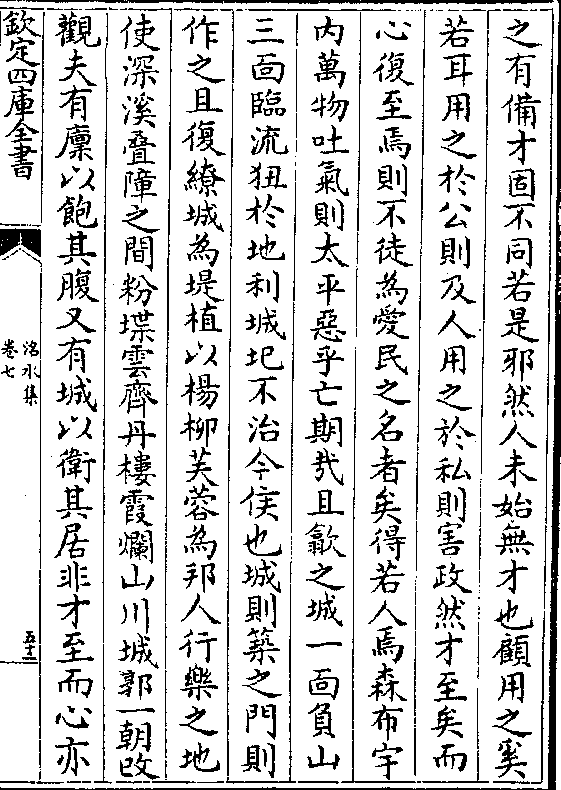 之有備才固不同若是邪然人未始無才也顧用之奚
若耳用之於公則及人用之於私則害政然才至矣而
心復至焉則不徒為愛民之名者矣得若人焉森布宇
内萬物吐氣則太平惡乎亡期㢤且歙之城一面負山
三面臨流狃於地利城圮不治今侯也城則築之門則
作之且復繚城為堤植以楊柳芙蓉為邦人行樂之地
使深溪疊障之間粉堞雲齊丹樓霞爛山川城郭一朝改
觀夫有廩以飽其腹又有城以衛其居非才至而心亦
欽定四庫全書
洺水集
卷七
五十二